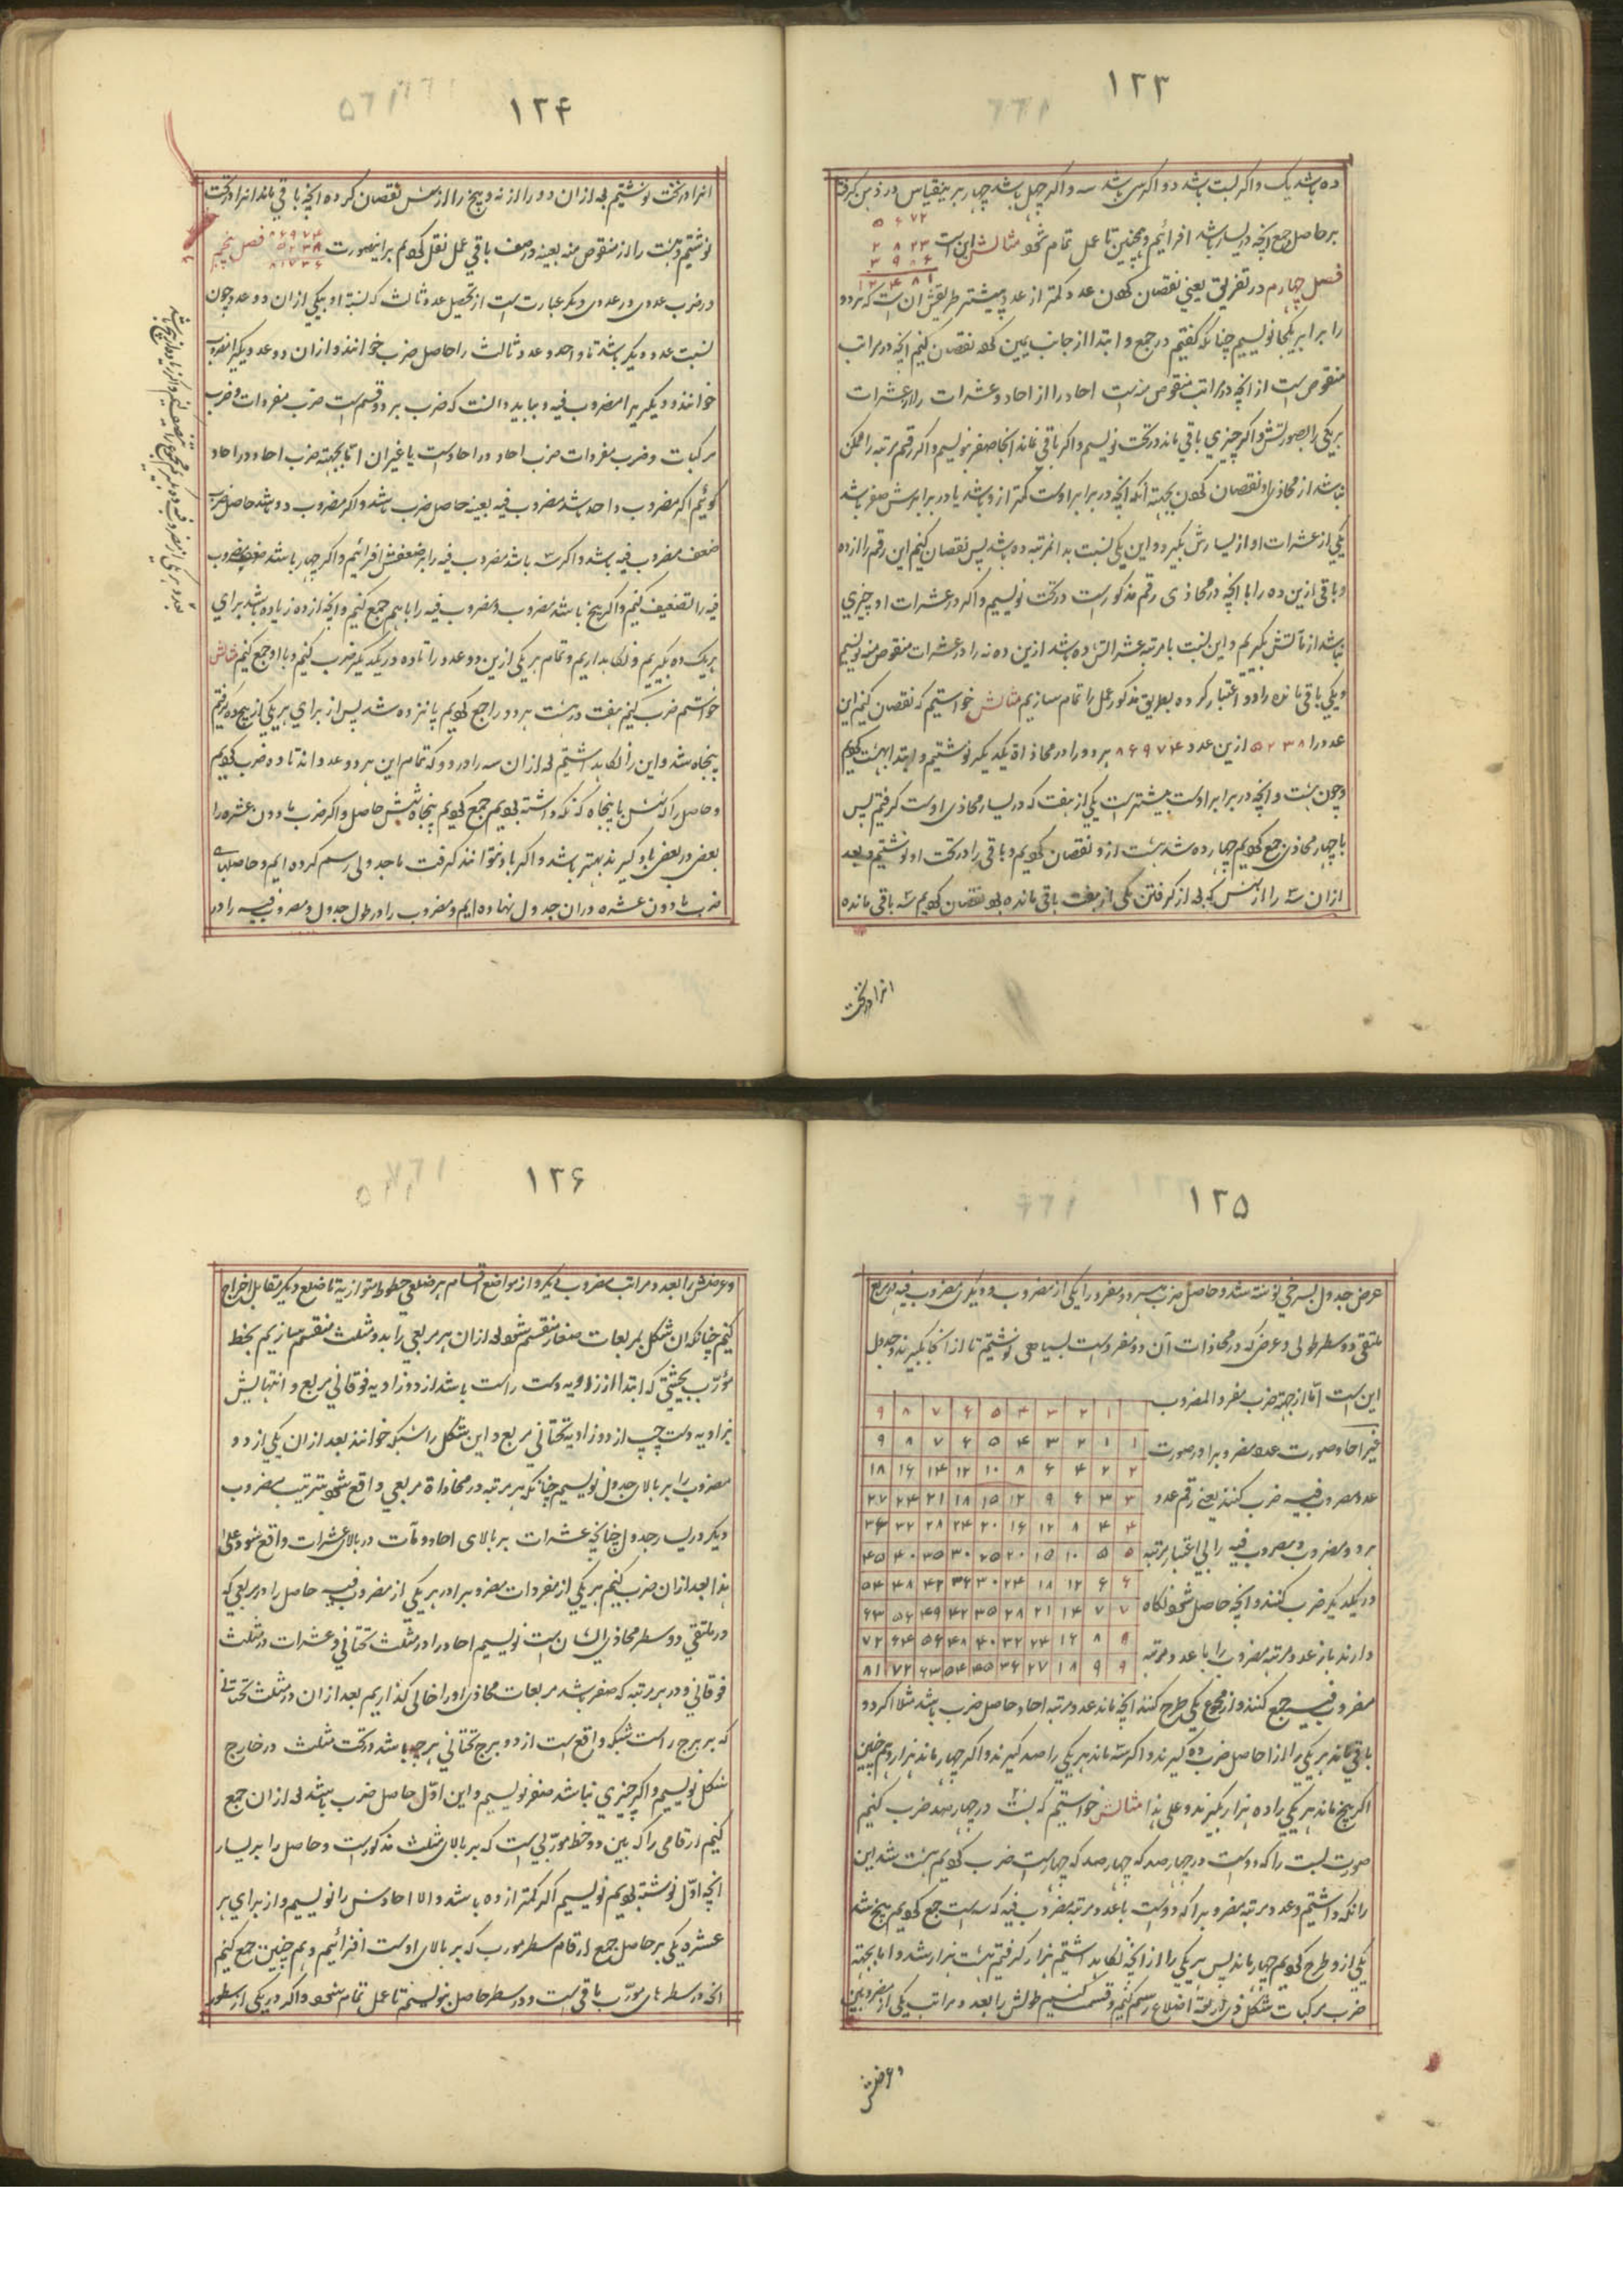 ۱۲۳
ده باشد یک و اگر بیست باشد دو و اگر سی باشد سه و اگر چهل باشد چهار برینقیاس در ذهن گرفته
بر حاصل جمع آنچه در یسار باشد افزائیم و همچنین تا عمل تمام شود مثالش این است
۵ ۶ ۷ ۲
۲ ۸ ۲ ۳
۳ ۹ ۸ ۶
۱۲ ۴ ۸ ۱
فصل چهارم در تفریق یعنی نقصان کردن عدد کمتر از عدد بیشتر طریقش آن است که هر دو
را برابر یکجا نویسیم چنانکه گفتیم در جمع و ابتدا از جانب یمین کرده نقصان کنیم آنچه در مراتب
منقوص است از آنچه در مراتب منقوص منه است احاد را از احاد و عشرات را از عشرات
هر یکی را بصورتش و اگر چیزی باقی ماند در تحت نویسیم و اگر باقی نماند آنجا صفر نویسیم و اگر رقم مرتبه را ممکن
نباشد از محاذی او نقصان کردن بجهة آنکه آنچه در برابر اوست کمتر ازو باشد یا در برابرش صفر باشد
یکی از عشرات او از یسارش بگیرد و این یکی نسبت بدانمرتبه ده باشد پس نقصان کنیم این رقم را از ده
و باقی ازین ده را با آنچه در محاذی رقم مذکور است در تحت نویسیم و اگر در عشرات او چیزی
نباشد از مآتش بگیریم و این نسبت با مرتبه عشراتش ده باشد ازین ده نه را در عشرات منقوص منه نویسیم
و یکی باقی مانده را دو اعتبار کرده بطریق مذکور عمل را تمام سازیم مثالش خواستیم که نقصان کنیم این
عدد را ۵۲۳۸ ازین عدد ۸۶۹۷۴ هر دو را در محاذاة یکدیگر نوشتیم و ابتدا بهشت کردیم
و چون هشت و آنچه در برابر اوست بیشتر است یکی از هفت که در یسار محاذی اوست گرفتیم پس
با چهار محاذی جمع کردیم چهارده شد هشت ازو نقصان کردیم و باقی را در تحت او نوشتیم و بعد
ازان سه را از شش که بعد از گرفتن یکی از هفت باقی مانده بود نقصان کردیم سه باقی مانده
انرا در تحت
۱۲۴
انرا در تحت نوشتیم بعد ازان دو را از نه و پنج را از شش نقصان کرده آنچه باقی ماند انرا در تحت
نوشتیم و هشت را از منقوص منه بعینه در صف باقی عمل نقل کردیم برینصورت
۸۶۹۷۴
۵۲۳۸
۸۱۷۳۶
فصل پنجم
در ضرب عددی در عددی دیگر عبارت است از تحصیل عدد ثالث که نسبة او بیکی ازان دو عدد چون
نسبت عدد دیگر باشد تا واحد و عدد ثالث را حاصل ضرب خوانند و ازان دو عدد یکیرا مضروب
خوانند و دیگریرا مضروب فیه و بباید دانست که ضرب بر دو قسم است ضرب مفردات و ضرب
مرکبات و ضرب مفردات ضرب احاد در احاد است یا غیر ان اما بجهته ضرب احاد در احاد
گوئیم اگر مضروب واحد باشد مضروب فیه بعینه حاصل ضرب باشد و اگر مضروب دو باشد حاصل ضرب
ضعف مضروب فیه باشد و اگر سه باشد مضروب فیه را بر ضعفش افزائیم و اگر چهار باشد ضعف مضروب
فیه را تضعیف کنیم و اگر پنج باشد مضروب و مضروب فیه را با هم جمع کنیم و آنچه از ده زیاده باشد برای
هر یک ده بگیریم و نگاه داریم و تمام هر یکی ازین دو عدد را تا ده در یکدیگر ضرب کنیم و با او جمع کنیم مثالش
خواستیم ضرب کنیم هفت در هشت هر دو را جمع کردیم پانزده شد پس از برای هر یکی از پنج ده گرفتیم
پنجاه شد و این را نگاه داشتیم بعد ازان سه را در دو که تمام این هر دو عدد اند تا ده ضرب کردیم
و حاصل را که شش با پنجاه که نگه داشته بودیم جمع کردیم پنجاه و شش حاصل و اگر ضرب مادون عشره را
بعضی در بعضی یاد گیرند بهتر باشد و اگر یاد نتوانند گرفت ما جدولی رسم کرده ایم و حاصلهای
ضرب مادون عشره در ان جدول نهاده ایم و مضروب را در طول جدول و مضروب فیه را در
۱۲۵
عرض جدول بسرخی نوشته شد و حاصل ضرب هر دو مفرد را یکی از مضروب و دیگری مضروب فیه در مربع
ملتقی دو سطر طولی و عرضی که در محاذات آن دو مفرد است بسیاهی نوشتیم تا از آنجا بگیرند و جدول
این است اما از جهة ضرب مفرد المضروب
فی غیر احاد صورت عدد مضروب را در صورت
عدد مضروب فیه ضرب کنند یعنی رقم عدد
هر دو مضروب و مضروب فیه را بی اعتبار مرتبه
در یکدیگر ضرب کنند و آنچه حاصل شود نگاه
دارند باز عدد مرتبه مضروب را با عدد مرتبه
۹ ۸ ۷ ۶ ۵ ۴ ۳ ۲ ۱
۹ ۸ ۷ ۶ ۵ ۴ ۳ ۲ ۱ ۱
۱۸ ۱۶ ۱۴ ۱۲ ۱۰ ۸ ۶ ۴ ۲ ۲
۲۷ ۲۴ ۲۱ ۱۸ ۱۵ ۱۲ ۹ ۶ ۳ ۳
۳۶ ۳۲ ۲۸ ۲۴ ۲۰ ۱۶ ۱۲ ۸ ۴ ۴
۴۵ ۴۰ ۳۵ ۳۰ ۲۵ ۲۰ ۱۵ ۱۰ ۵ ۵
۵۴ ۴۸ ۴۲ ۳۶ ۳۰ ۲۴ ۱۸ ۱۲ ۶ ۶
۶۳ ۵۶ ۴۹ ۴۲ ۳۵ ۲۸ ۲۱ ۱۴ ۷ ۷
۷۲ ۶۴ ۵۶ ۴۸ ۴۰ ۳۲ ۲۴ ۱۶ ۸ ۸
۸۱ ۷۲ ۶۳ ۵۴ ۴۵ ۳۶ ۲۷ ۱۸ ۹ ۹
مضروب فیه جمع کنند و از مجموع یکی طرح کنند آنچه ماند عدد مرتبه احاد حاصل ضرب باشد مثلا اگر دو
باقی ماند هر یکی را از حاصل ضرب ده گیرند و اگر سه ماند هر یکی را صد گیرند و اگر چهار ماند هزار و هم چنین
اگر پنج ماند هر یکی را ده هزار بگیرند و علی هذا مثالش خواستیم که بیست در چهارصد ضرب کنیم
صورت بیست را که دو است در چهارصد که چهار است ضرب کردیم هشت شد این
را نگه داشتیم و عدد مرتبه مضروب را که دو است با عدد مرتبه مضروب فیه که سه است جمع کردیم پنج شد
یکی ازو طرح کردیم چهار ماند پس هر یکی را از آنچه نگاه داشتیم هزار گرفتیم هشت هزار شد و اما بجهته
ضرب مرکبات شکل ذی اربعة اضلاع رسم کنیم و قسمت کنیم طولش را بعدد مراتب یکی از مضروبین
و عرضش
۱۲۶
و عرضش را بعدد مراتب مضروب دیگر و از مواضع اقسام هر ضلعی خطوط متوازیة تا ضلع دیگر مقابل اخراج
کنیم چنانکه ان شکل بمربعات صغار منقسم شود بعد ازان هر مربعی را بدو مثلث منقسم سازیم بخط
مورّب بحیثیتی که ابتدا از زاویه دست راست باشد از دو زاویه فوقانی مربع و انتهایش
بزاویه دست چپ از دو زاویه تحتانی مربع و این شکل را شبکه خوانند بعد ازان یکی از دو
مضروب را بر بالای جدول نویسیم چنانکه هر مرتبه در محاذاة مربعی واقع شود بترتیب و مضروب
دیگر در یسار جدول چنانچه عشرات بر بالای احاد و مآت در بالای عشرات واقع شود و علی
هذا بعد ازان ضرب کنیم هر یکی از مفردات مضروب را در هر یکی از مضروب فیه حاصل را در مربعی که
در ملتقی دو سطر محاذی ایشان است نویسیم احاد را در مثلث تحتانی و عشرات در مثلث
فوقانی و در هر مرتبه که صفر باشد مربعات محاذی او را خالی گذاریم بعد ازان در مثلث تحتانی
که بر برج راست شبکه واقع است از دو برج تحتانی هر چه باشد در تحت مثلث در خارج
شکل نویسیم و اگر چیزی نباشد صفر نویسیم و این اوّل حاصل ضرب باشد بعد ازان جمع
کنیم ارقامی را که بین دو خط مورّبی است که بر بالای مثلث مذکور است و حاصل را بر یسار
آنچه اوّل نوشته بودیم نویسیم اگر کمتر از ده باشد و الا احادش را نویسیم و از برای هر
عشره یکی بر حاصل جمع ارقام سطر مورب که بر بالای اوست افزائیم و هم چنین جمع کنیم
آنچه در سطرهای مورّب باقی است و در سطر حاصل نویسیم تا عمل تمام شود و اگر در یکی از سطور